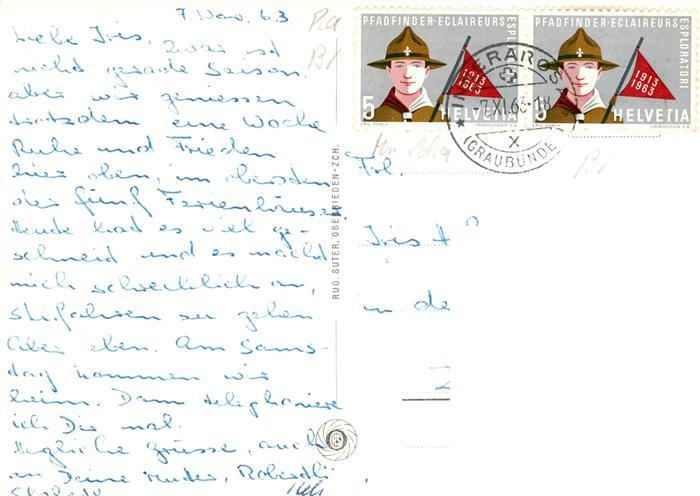 7. Nov. 63
Liebe Iris, zwar ist
nicht gerade Saison,
aber wir geniessen
trotzdem eine Woche
Ruhe und Frieden
hier oben, im
der fünf Ferienhäuser.
Heute had es viel ge-
schneid und es macht
mich schrecklich an,
skifahren zu gehen
aber eben. Am Sams-
dag kommen wir
heim. Dann telephoniere
ich Dir mal.
Herzliche Grüsse, auch
an Deine Mutter,
RUD. SUTER, OBERRIEDEN-ZCH.
PFADFINDER·ECLAIREURS
ESPLORATORI
1913
1963
5
HELVETIA
PFADFINDER·ECLAIREURS
ESPLORATORI
1913
1963
HELVETIA
-7.XI.63-18
X
(GRAUBÜNDEN)
Frl.
Iris H
in de
Z